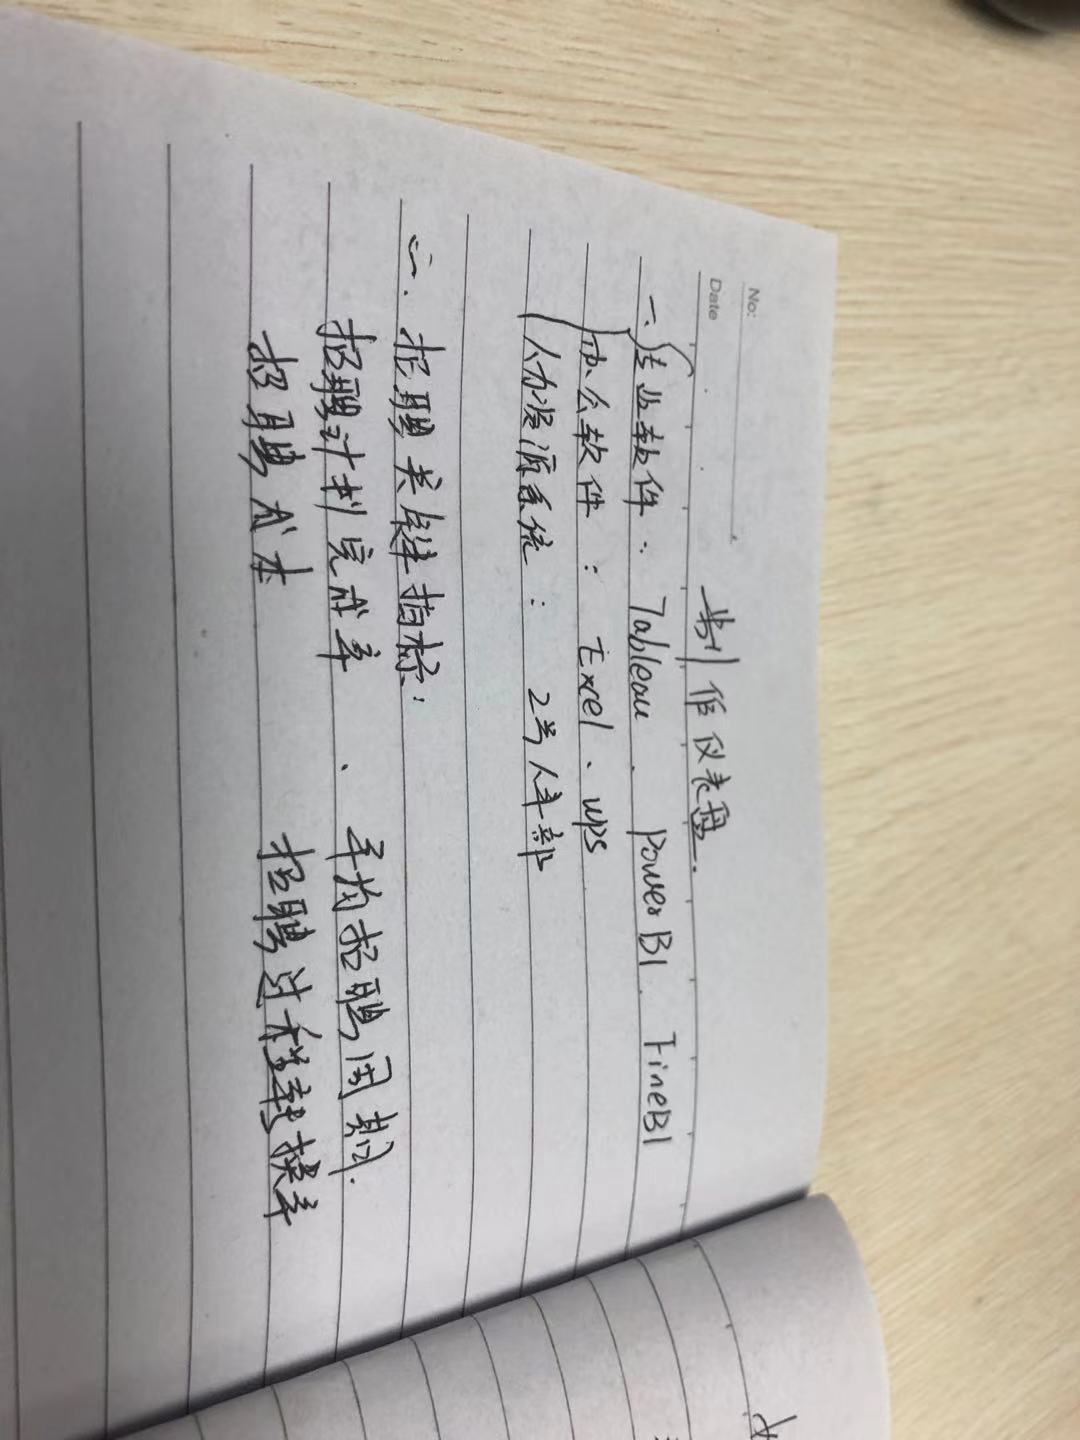 No:
Date
制作仪表盘.
一、专业软件: Tableau、PowerBI、FineBI
办公软件: Excel、WPS
人力资源系统: 2号人事部
二、招聘关键指标:
招聘计划完成率、平均招聘周期.
招聘成本 招聘过程转换率